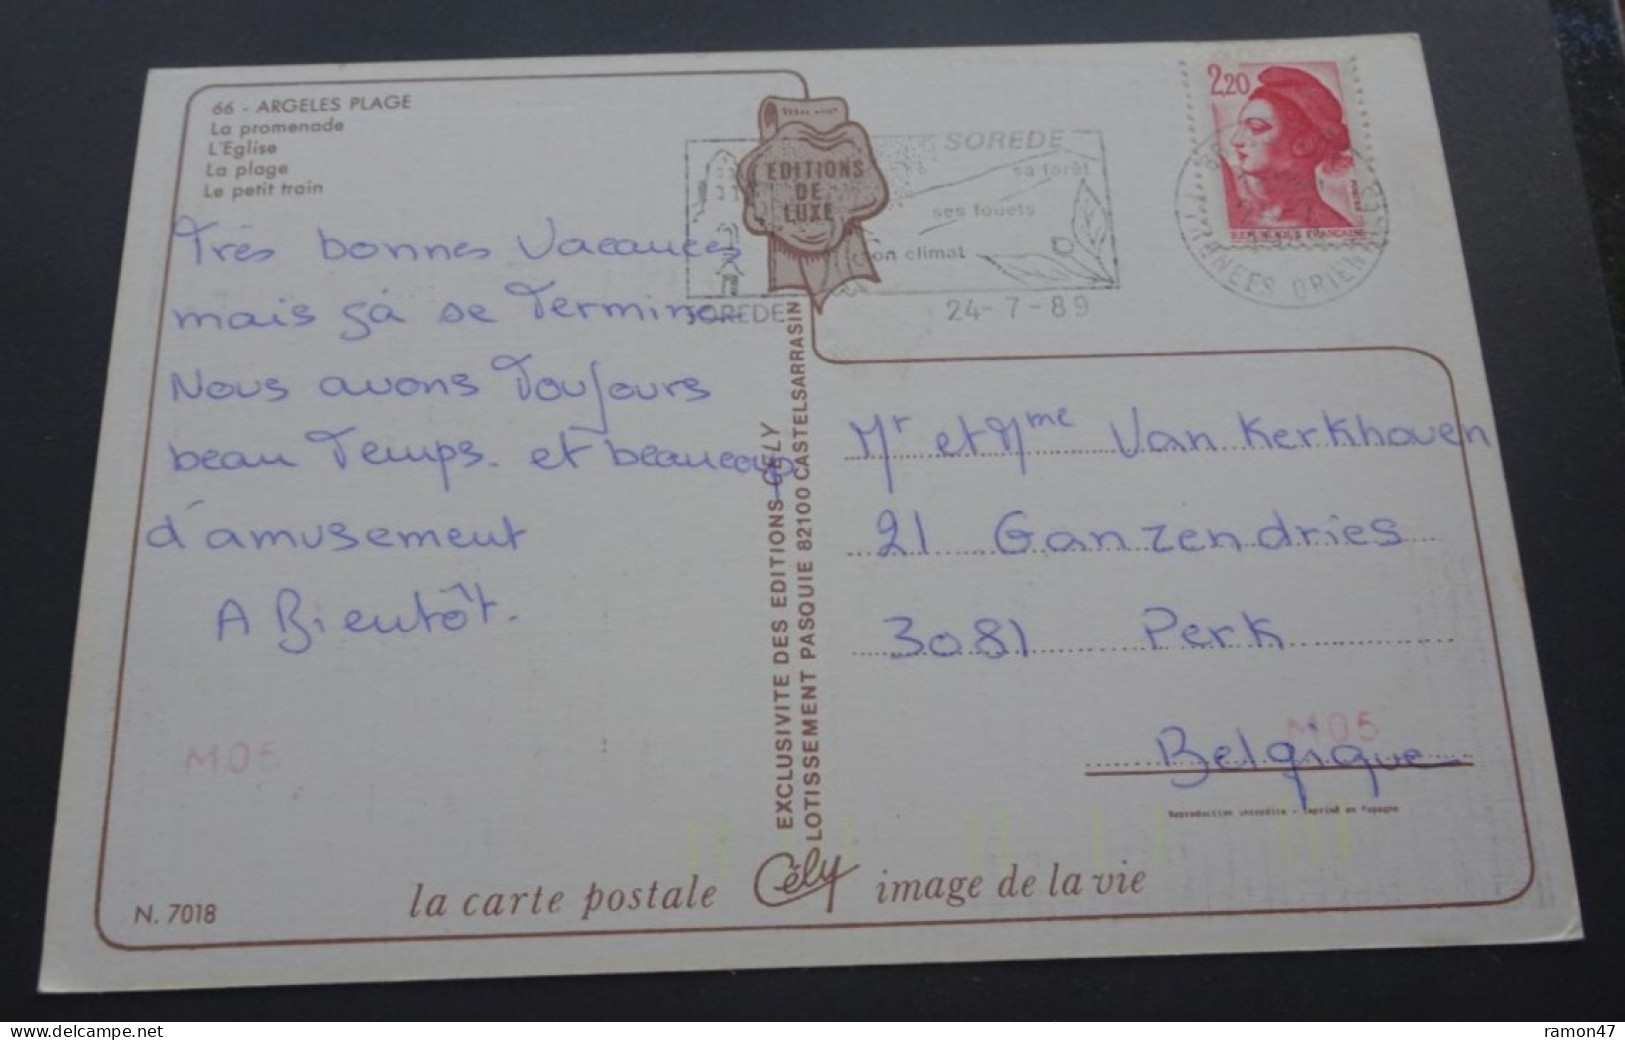 66 - ARGELES PLAGE
La promenade
L'Eglise
La plage
Le petit train
Très bonnes Vacances
mais çà se Termine
Nous avons Toujours
beau Temps. et beaucoup
d'amusement
A Bientôt.
M05
N. 7018
EDITIONS
DE
LUXE
SOREDE
sa forêt
ses fouets
son climat
SOREDE
24-7-89
2,20
REPUBLIQUE FRANÇAISE
PYRENEES ORIENTALES
EXCLUSIVITE DES EDITIONS CELY
LOTISSEMENT PASQUIE 82100 CASTELSARRASIN
Mr et Mme Van Kerkhoven
21 Ganzendries
3081 Perk
M05
Belgique
Reproduction interdite - Imprimé en Espagne
la carte postale Cély image de la vie
www.delcampe.net
ramon47